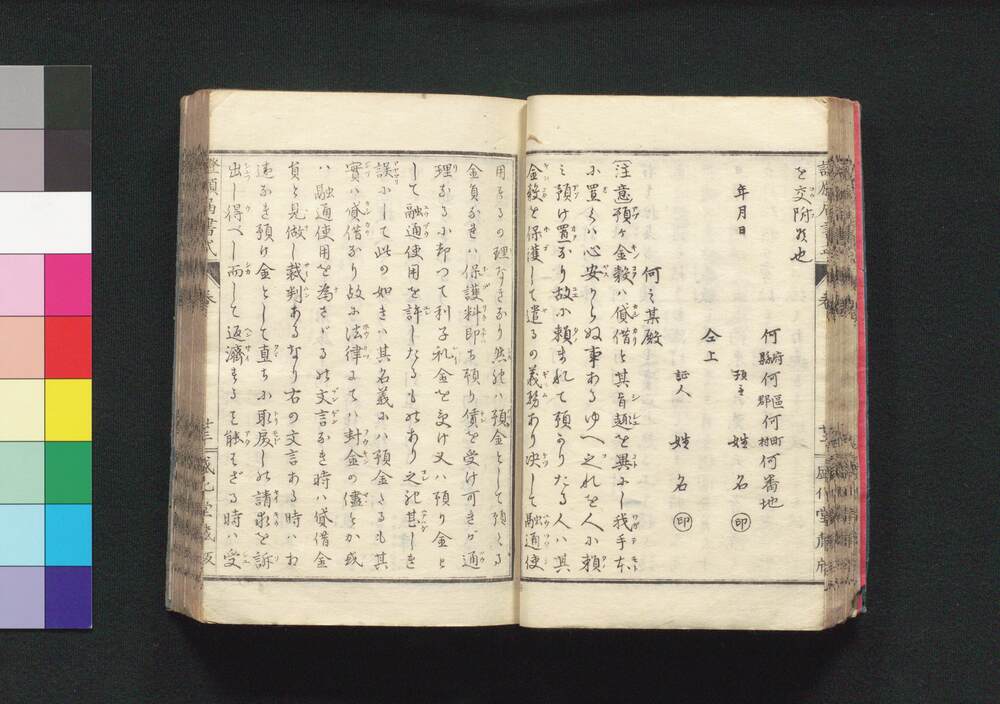 を交附致也
年月日
何府縣何區郡何町村何番地
預主 姓名 ㊞
仝上
証人 姓名 ㊞
何之某殿
(注意預ヶ金穀ハ貸借と其旨趣を異にし我手本
に置くハ心安からぬ事あるゆへ之れを人に頼
ミ預け置なり故に頼まれて預かりたる人ハ其
金穀を保護して遣るの義務あり决して融通使
用するの理なきなり然れ𪜈預金として預くる
金員なれハ保護料即ち預り賃を受け可きが通
理なるに却つて利子礼金を受け又ハ預り金と
して融通使用を許したるものあり之れ甚しき
誤にして此の如きハ其名義にハ預金たるも其
實ハ貸借なり故に法律にてハ封金の儘とか或
ハ融通使用を為さゞるの文言なき時ハ貸借金
員と見做し裁判あるなり右の文言ある時ハ相
違なき預け金として直ちに取戻しの請求を訴
出し得べし而して返濟する能わざる時ハ受
證願届書式
卷
盛化堂藏版